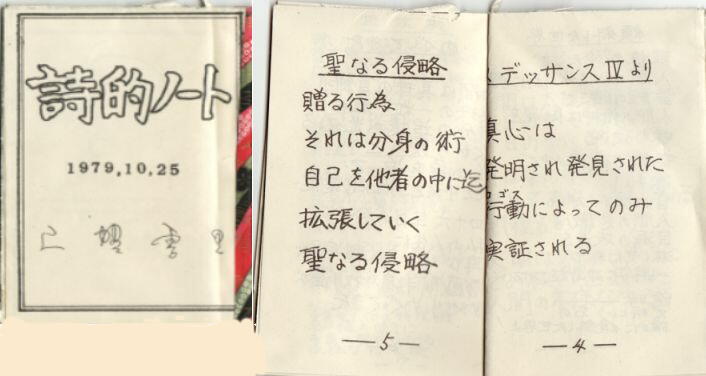 詩的ノート
1979,10,25
聖なる侵略
贈る行為
それは分身の術
自己を他者の中に迄
拡張していく
聖なる侵略
—5—
デッサンスⅣより
真心は
発明され発見された
行動によってのみ
実証される
—4—